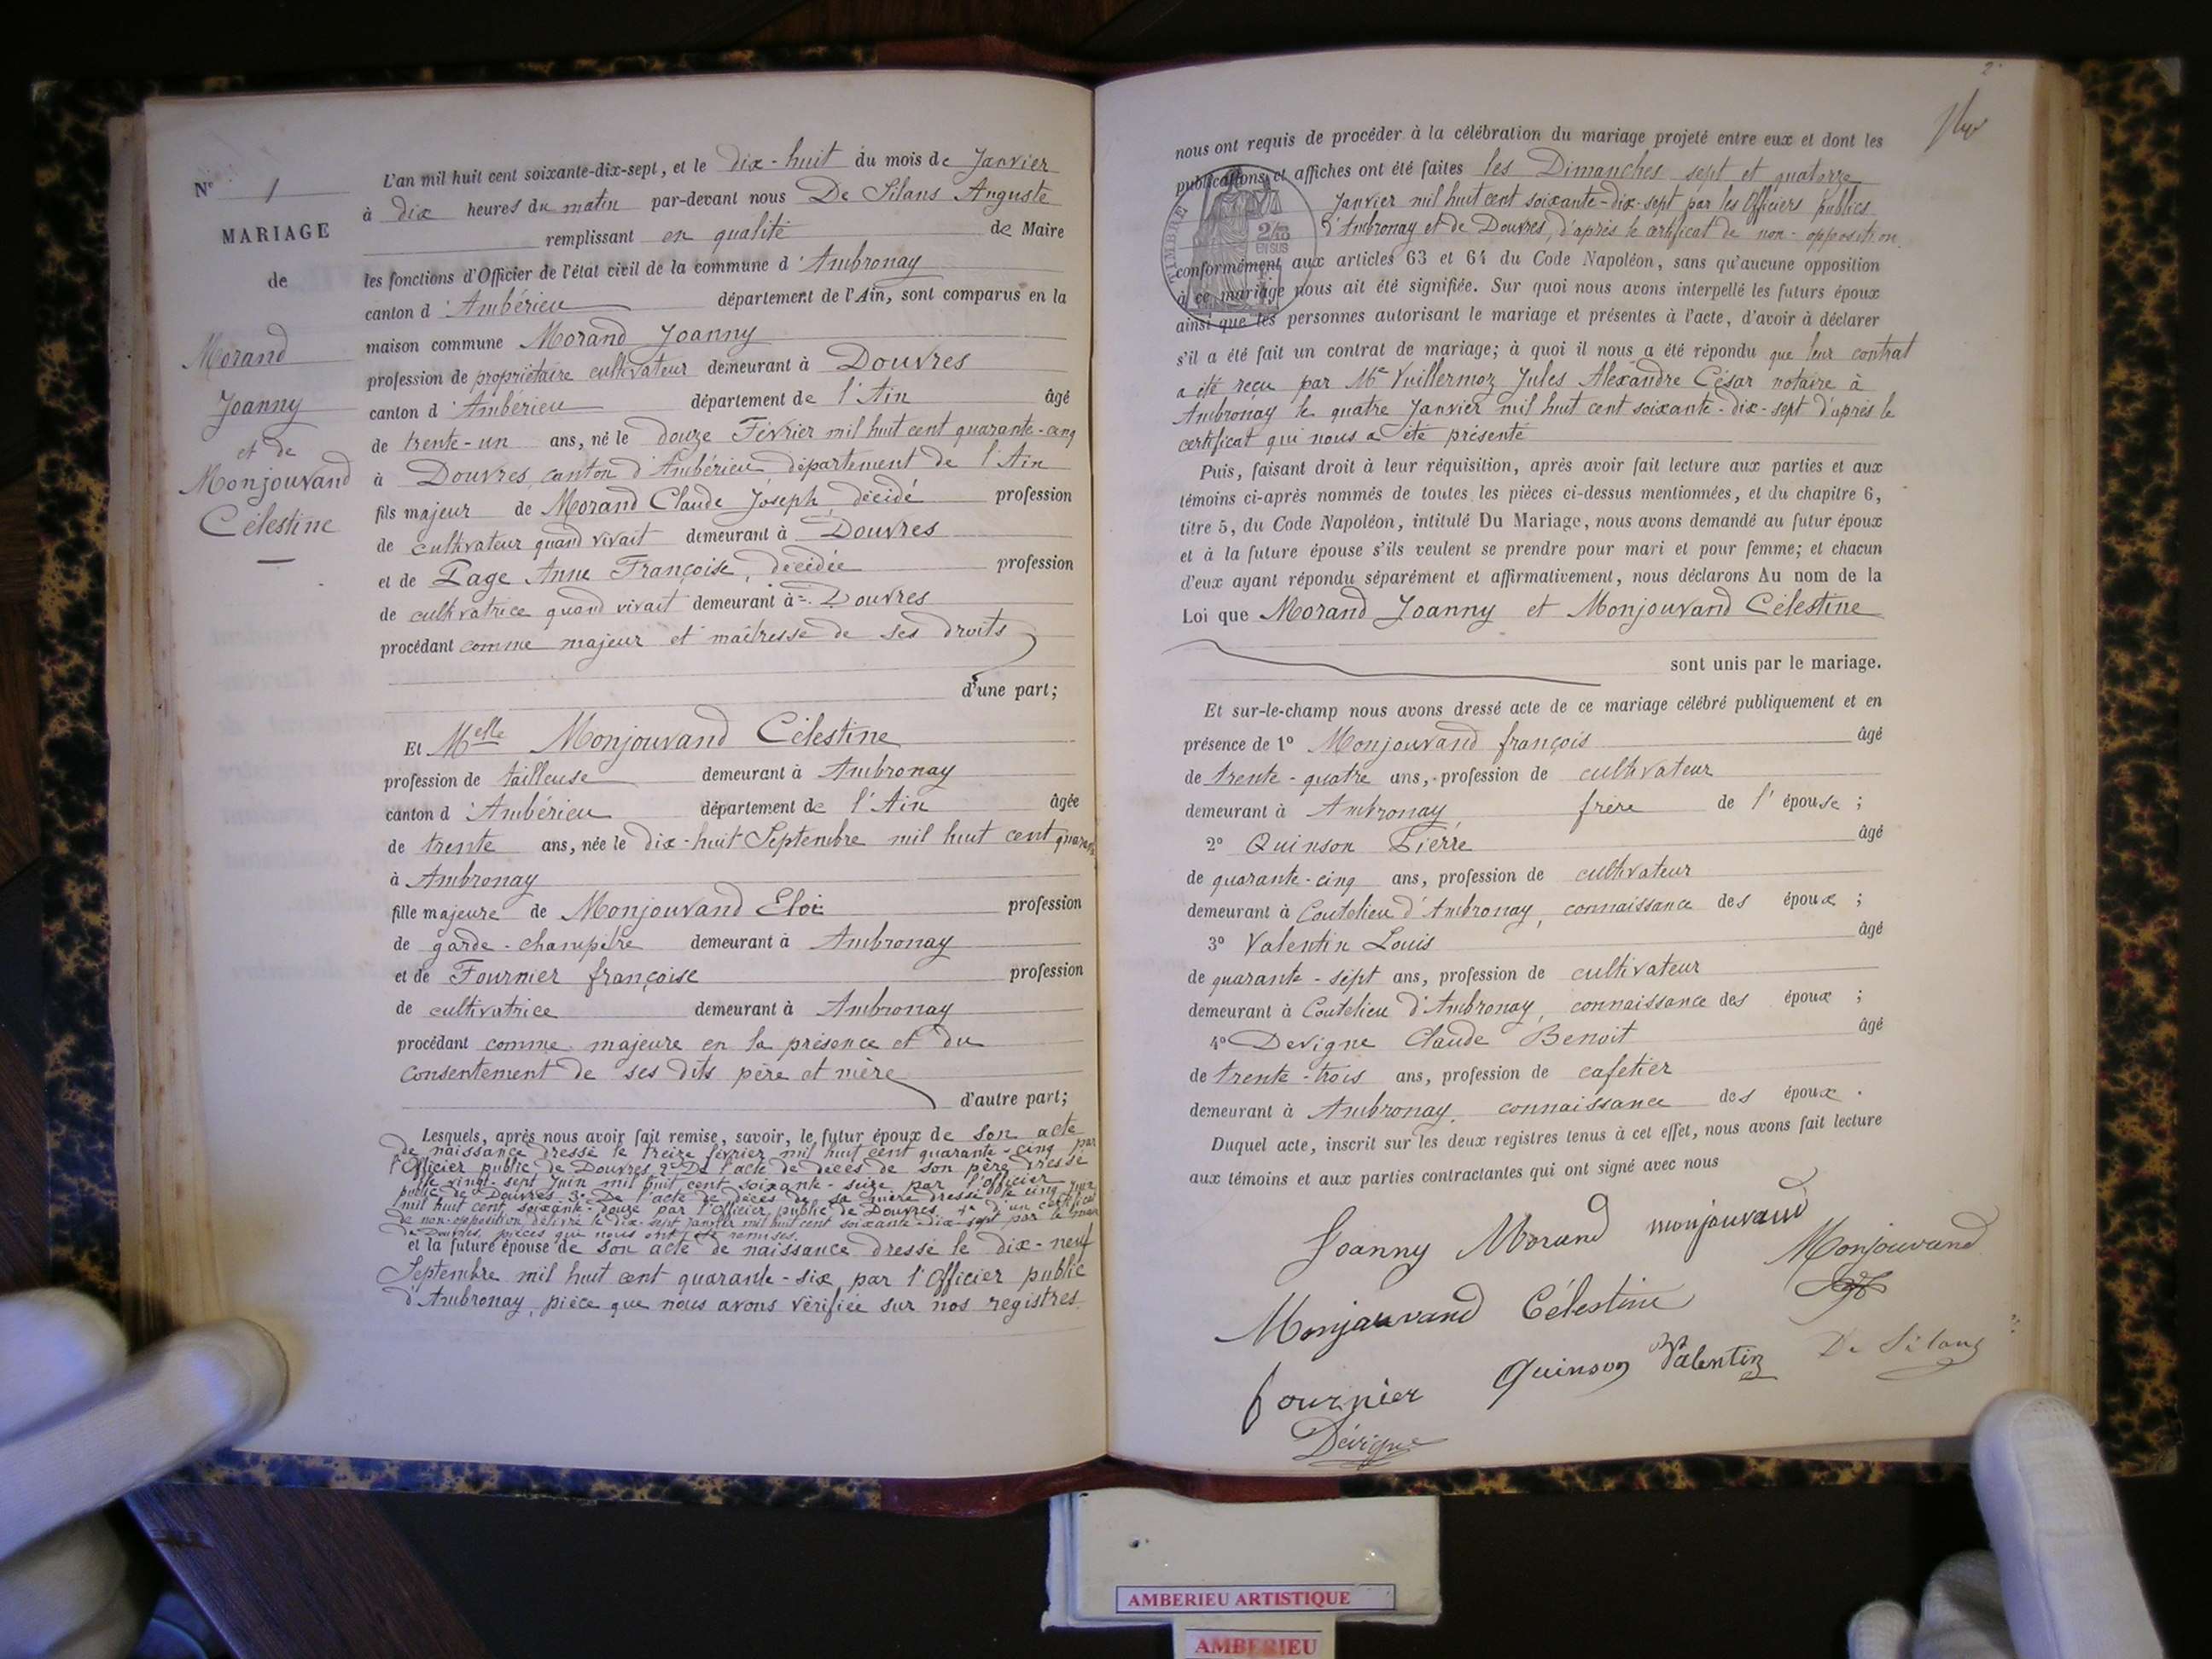 N° 1
MARIAGE
de
Morand
Joanny
et de
Monjouvand
Célestine
L'an mil huit cent soixante-dix-sept, et le dix-huit du mois de Janvier
à dix heures du matin par-devant nous De Silans Auguste
remplissant en qualité de Maire
les fonctions d'Officier de l'état civil de la commune d'Ambronay
canton d'Ambérieu département de l'Ain, sont comparus en la
maison commune Morand Joanny
profession de propriétaire cultivateur demeurant à Douvres
canton d'Ambérieu département de l'Ain âgé
de trente-un ans, né le douze Février mil huit cent quarante-cinq
à Douvres canton d'Ambérieu département de l'Ain
fils majeur de Morand Claude Joseph, décédé profession
de cultivateur quand vivait demeurant à Douvres
et de Page Anne Françoise, décédée profession
de cultivatrice quand vivait demeurant à Douvres
procédant comme majeur et maîtresse de ses droits
d'une part;
Et Melle Monjouvand Célestine
profession de tailleuse demeurant à Ambronay
canton d'Ambérieu département de l'Ain âgée
de trente ans, née le dix-huit Septembre mil huit cent
à Ambronay
fille majeure de Monjouvand Eloi profession
de garde-champêtre demeurant à Ambronay
et de Fournier françoise profession
de cultivatrice demeurant à Ambronay
procédant comme majeure en la présence et du
consentement de ses dits père et mère
d'autre part;
Lesquels, après nous avoir fait remise, savoir, le futur époux de son acte
de naissance dressé le treize février mil huit cent quarante-cinq par
l'Officier public de Douvres 2° De l'acte de décès de son père dressé
le vingt-sept Juin mil huit cent soixante-seize par l'officier
public de Douvres 3° De l'acte de décès de sa mère dressé le cinq
mil huit cent soixante-douze par l'Officier public de Douvres 4° d'un certificat
de non-opposition délivré le dix-sept janvier mil huit cent soixante-dix-sept par le maire
de Douvres, pièces que nous ont été remises.
et la future épouse de son acte de naissance dressé le dix-neuf
Septembre mil huit cent quarante-six par l'Officier public
d'Ambronay, pièce que nous avons vérifiée sur nos registres.
2
nous ont requis de procéder à la célébration du mariage projeté entre eux et dont les
publications et affiches ont été faites les Dimanches sept et quatorze
Janvier mil huit cent soixante-dix-sept par les Officiers publics
d'Ambronay et de Douvres, d'après le certificat de non-opposition.
TIMBRE
2/10
EN SUS
conformément aux articles 63 et 64 du Code Napoléon, sans qu'aucune opposition
à ce mariage nous ait été signifiée. Sur quoi nous avons interpellé les futurs époux
ainsi que les personnes autorisant le mariage et présentes à l'acte, d'avoir à déclarer
s'il a été fait un contrat de mariage; à quoi il nous a été répondu que leur contrat
a été reçu par Me Vuillermoz Jules Alexandre César notaire à
Ambronay le quatre Janvier mil huit cent soixante-dix-sept d'après le
certificat qui nous a été présenté
Puis, faisant droit à leur réquisition, après avoir fait lecture aux parties et aux
témoins ci-après nommés de toutes les pièces ci-dessus mentionnées, et du chapitre 6,
titre 5, du Code Napoléon, intitulé Du Mariage, nous avons demandé au futur époux
et à la future épouse s'ils veulent se prendre pour mari et pour femme; et chacun
d'eux ayant répondu séparément et affirmativement, nous déclarons Au nom de la
Loi que Morand Joanny et Monjouvand Célestine
sont unis par le mariage.
Et sur-le-champ nous avons dressé acte de ce mariage célébré publiquement et en
présence de 1° Monjouvand françois âgé
de trente-quatre ans, profession de cultivateur
demeurant à Ambronay frère de l'épouse;
2° Quinson Pierre âgé
de quarante-cinq ans, profession de cultivateur
demeurant à Coutelieu d'Ambronay, connaissance des époux;
3° Valentin Louis âgé
de quarante-sept ans, profession de cultivateur
demeurant à Coutelieu d'Ambronay, connaissance des époux;
4° Devigne Claude Benoit âgé
de trente-trois ans, profession de cafetier
demeurant à Ambronay connaissance des époux.
Duquel acte, inscrit sur les deux registres tenus à cet effet, nous avons fait lecture
aux témoins et aux parties contractantes qui ont signé avec nous
Joanny Morand monjouvand
Monjouvand
Monjouvand Célestine
fournier Quinson Valentin De Silans
Devigne
AMBERIEU ARTISTIQUE
AMBERIEU